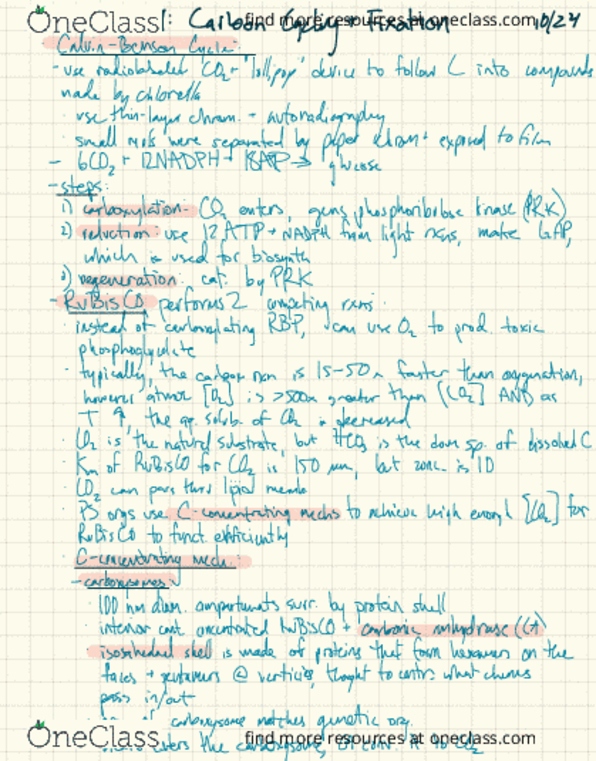 OneClass
find more resources at oneclass.com
1: Carbon Cycling + Fixation 10/24
Calvin-Benson Cycle:
- use radiolabeled CO2 + "lollipop" device to follow C into compounds
made by chlorella
· use thin-layer chrom. + autoradiography
· small mols were separated by paper chrom + exposed to film
- 6CO2 + 12NADPH + 18ATP → glucose
- steps:
1) carboxylation: CO2 enters, phosphoribulose kinase (PRK)
2) reduction: use 12 ATP + NADPH from light rxns, make GAP,
which is used for biosynth
3) regeneration: cat. by PRK
- RuBisCO performs 2 competing rxns:
· instead of carboxylating RBP, can use O2 to prod. toxic
phosphoglycolate
· typically, the carbox rxn is 15-50x faster than oxygenation,
however atmos [O2] is >500x greater than [CO2] AND as
T ↑, the aq. solub. of CO2 is decreased
· CO2 is the natural substrate, but HCO3 is the dom sp. of dissolved C
· Km of RuBisCO for CO2 is 150 um, but conc. is 10
· CO2 can pass thru lipid memb
· PS orgs use C-concentrating mechs to achieve high enough [CO2] for
RuBisCO to funct. efficiently
· C-concentrating mech.:
- carboxysomes:
· 100 nm diam. compartments surr. by protein shell
· interior cont. concentrated RuBisCO + carbonic anhydrase (CA)
· isosehedral shell is made of proteins that form hexamers on the
faces + pentamers @ verticies, thought to contrl what chems
pass in/out
of carboxysome matches genetic org.
enters the carboxysome, conv. it to CO2
OneClass
find more resources at oneclass.com